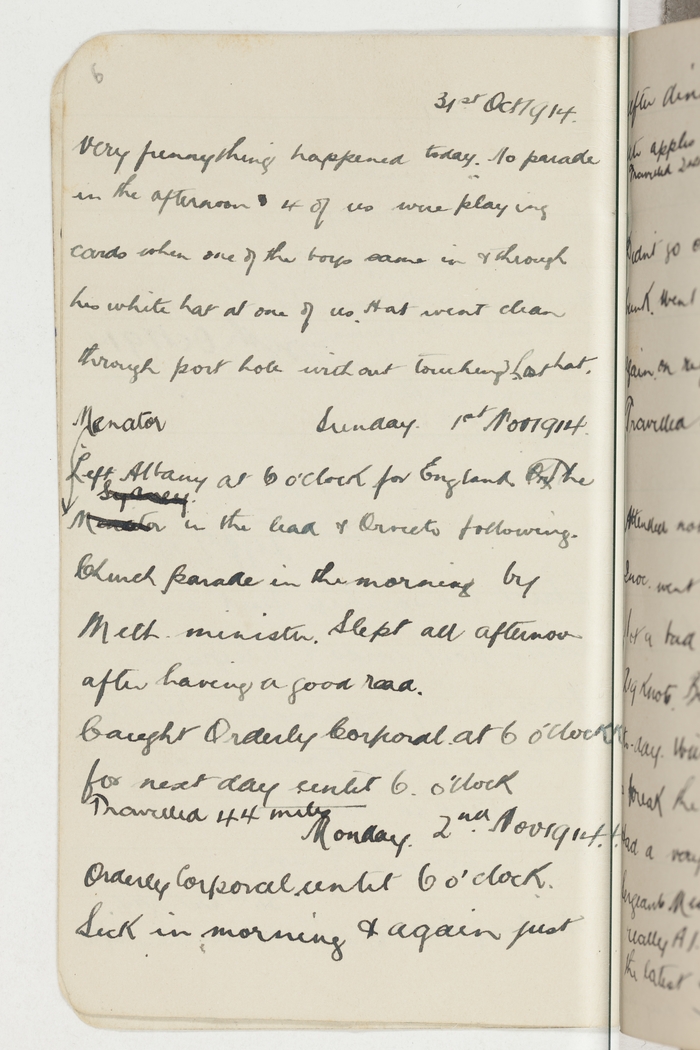 6
31st Oct 1914.
Very funny thing happened today. No parade
in the afternoon 4 of us were playing
cards when one of the boys came in & through
his white hat at one of us. Hat went clean
through port hole without touching. Lost hat.
Menator Sunday. 1st Nov 1914.
Left Albany at 6 o'clock for England The
Sydney
Menator in the lead & Orvieto following.
Church parade in the morning by
Meth. minister. Slept all afternoon
after having a good read.
Caught Orderly Corporal. at 6 o'clock
for next day until 6. o'clock
Travelled 44 miles
Monday. 2nd. Nov 1914.
Orderly Corporal until 6 o'clock.
Sick in morning & again just
after din
apples
Travelled
Didnt go
bunk. went
again. on
Travelled
Attended
went
had a bad
knots.
to-day.
break the
Had a very
Sergeant
really
the latest